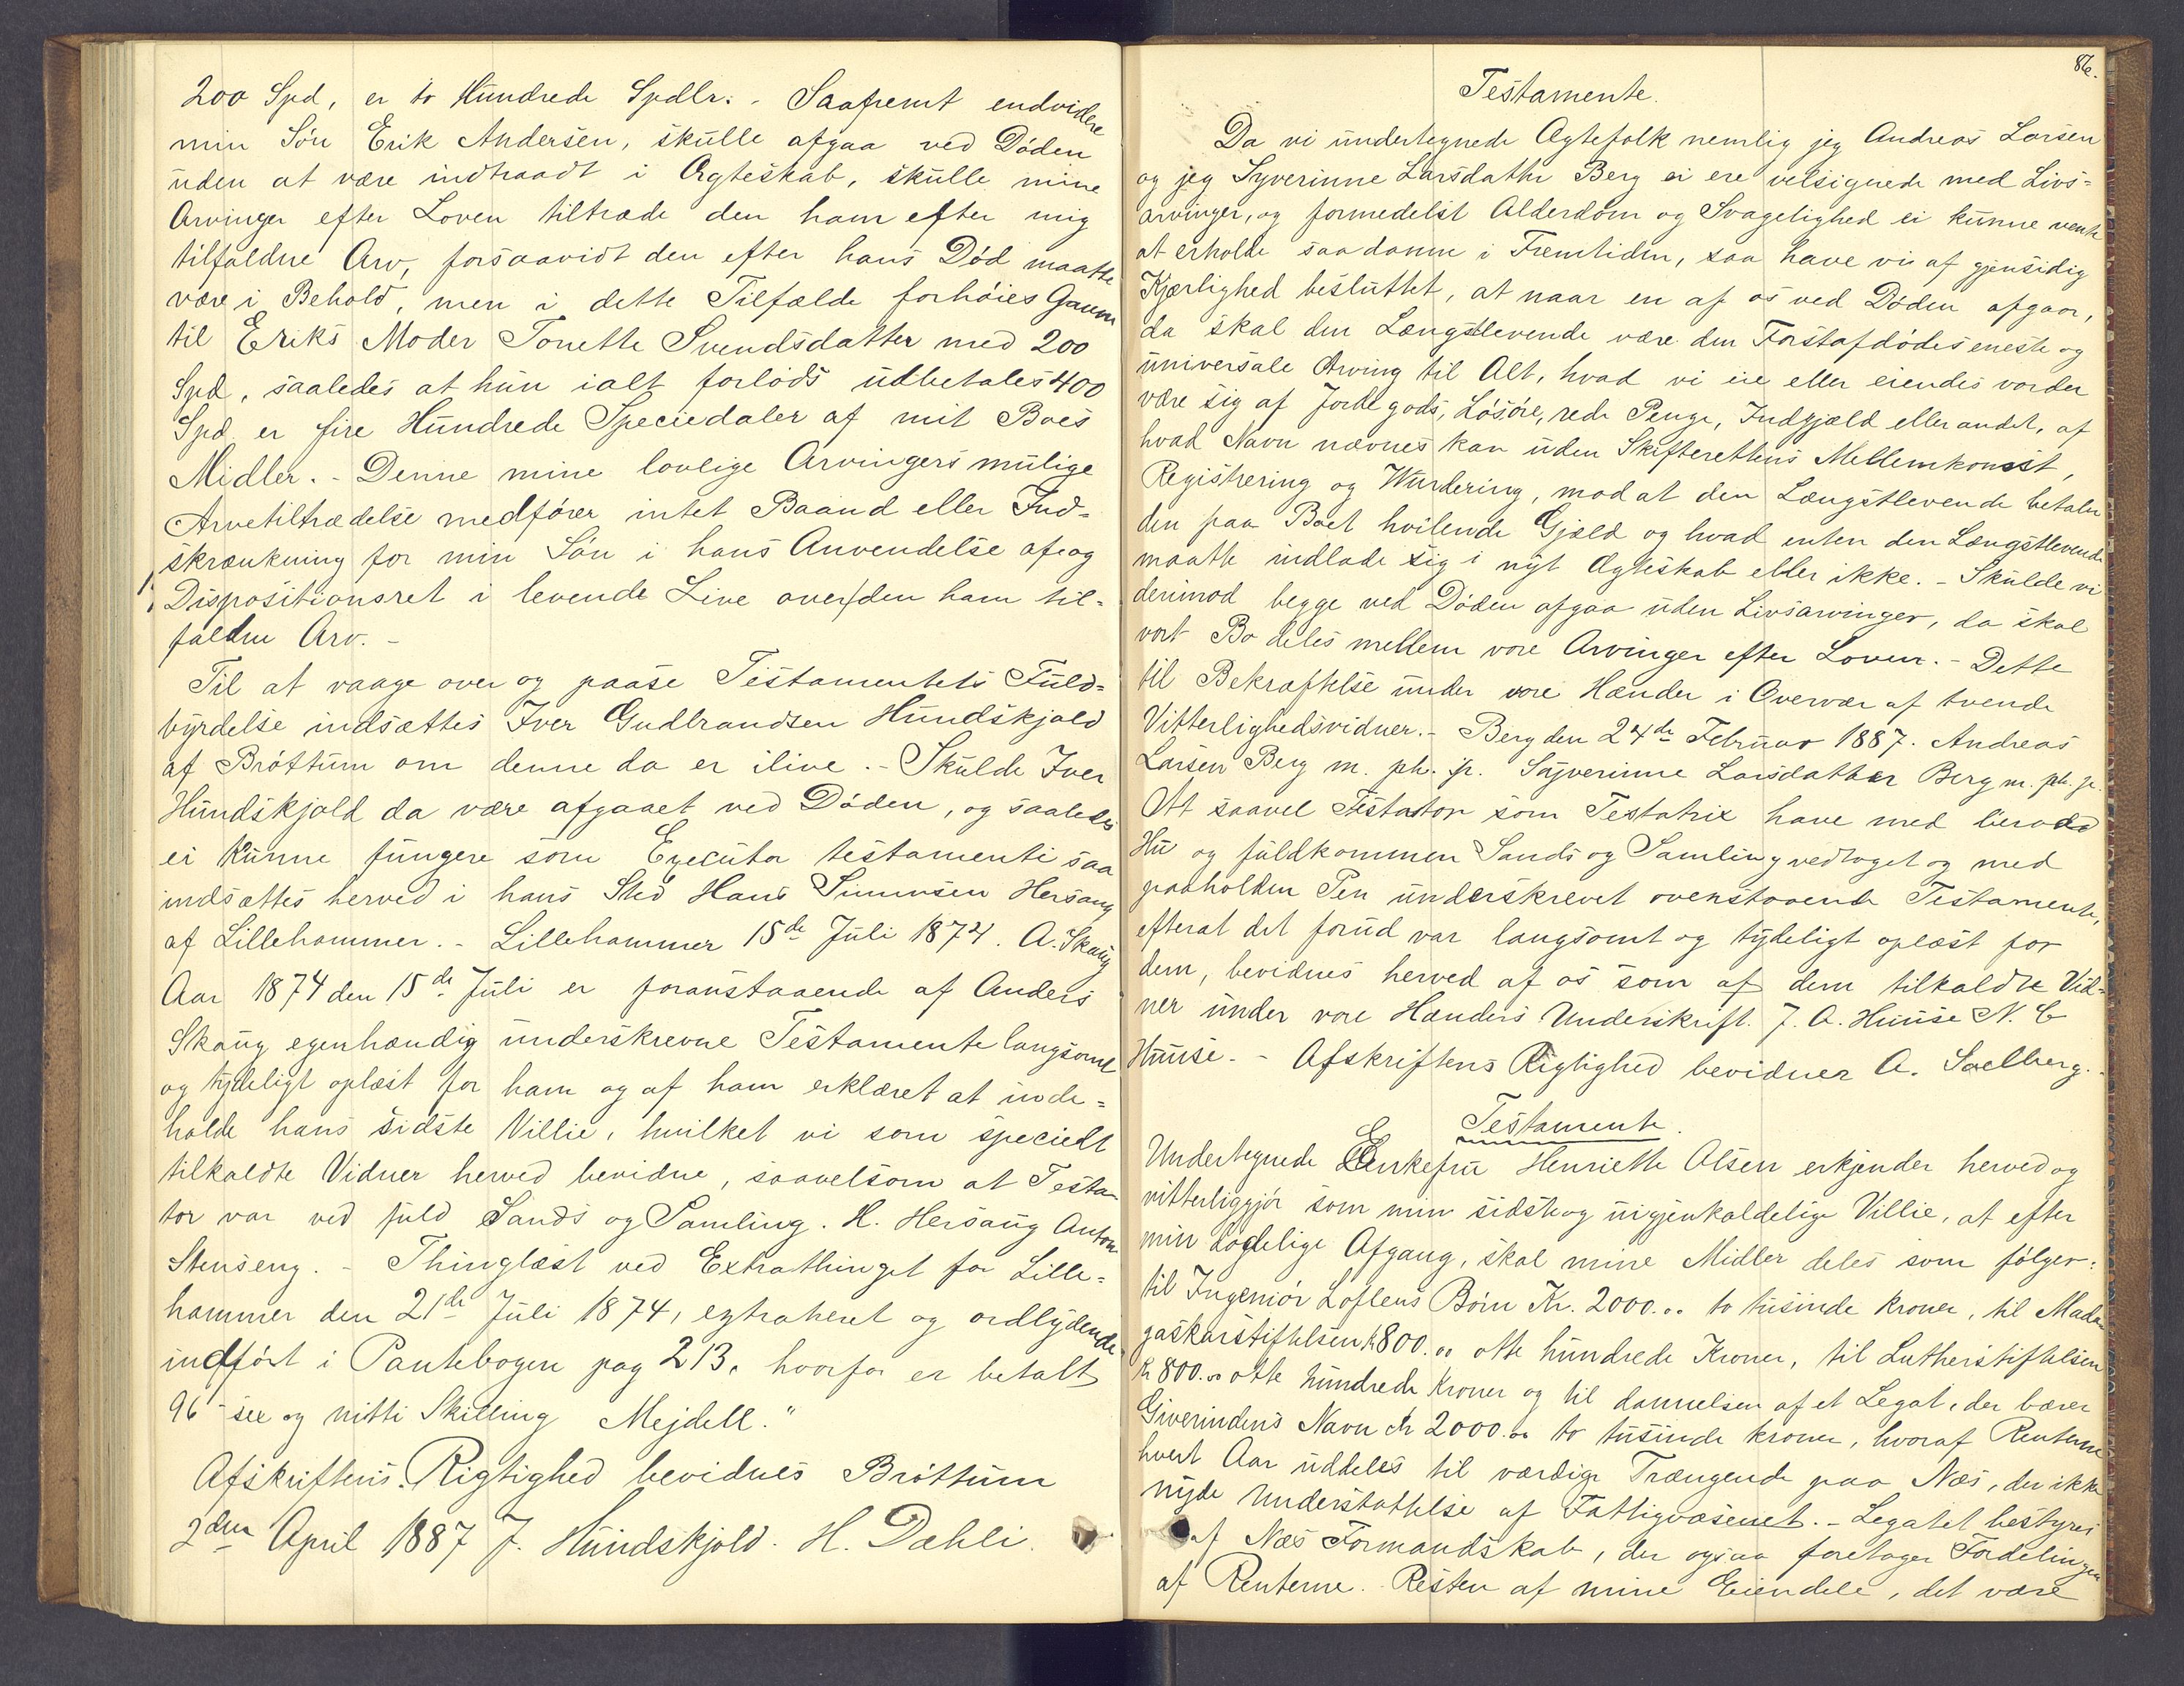 200 Spd, er to Hundrede Spdlr. - Saafremt endvidere
min Søn Erik Andersen, skulle afgaa ved Døden
uden at være indtraadt i Ægteskab, skulle mine
Arvinger efter Loven tiltræde den ham efter mig
tilfaldne Arv, forsaavidt den efter hans Død maatte
være i Behold, men i dette Tilfælde forhøies Gaven
til Eriks Moder Tonette Svendsdatter med 200
Spd, saaledes at hun ialt forlods udbetales 400
Spd er fire Hundrede Speciedaler af mit Boes
Midler. - Denne mine lovlige Arvingers mulige
Arvetiltrædelse medfører intet Baand eller Ind-
skrænkning for min Søn i hans Anvendelse af og
Dispositionsret i levende Live over den ham til-
faldne Arv. -
Til at vaage over og paase Testamentets Fuld-
byrdelse indsættes Iver Gudbrandsen Hundskjold
af Brøttum om denne da er ilive. - Skulde Iver
Hundskjold da være afgaaet ved Døden, og saaledes
ei kunne fungere som Executor testamenti saa
indsættes herved i hans Sted Hans Simensen Hersaug
af Lillehammer. - Lillehammer 15de Juli 1874. A. Skaug
Aar 1874 den 15de Juli er foranstaaende af Anders
Skaug egenhændig underskrevne Testamente langsomt
og tydeligt oplæst for ham og af ham erklæret at inde-
holde hans sidste Villie, hvilket vi som specielt
tilkaldte Vidner herved bevidne, saavelsom at Testa-
tor var ved fuld Sands og Samling. H. Hersaug Anton
Stenseng. - Thinglæst ved Extrathinget for Lille-
hammer den 21de Juli 1874, extraheret og ordlydende
indført i Pantebogen pag 213, hvorfor er betalt
96 - sex og nitti Skilling Mejdell."
Afskriftens Rigtighed bevidnes Brøttum
2den April 1887 J. Hundskjold. H. Dæhli.
86.
Testamente.
Da vi undertegnede Ægtefolk nemlig jeg Andreas Larsen
og jeg Syverinne Larsdatter Berg ei ere velsignede med Livs-
arvinger, og formedelst Alderdom og Svagelighed ei kunne vente
at erholde saadanne i Fremtiden, saa have vi af gjensidig
Kjærlighed besluttet, at naar en af os ved Døden afgaar,
da skal den Længstlevende være den Førstafdødes eneste og
universale Arving til Alt, hvad vi eie eller eiendes vorder
være sig af Jordegods, Løsøre, rede Penge, Indgjæld eller andet, af
hvad Navn nævnes kan uden Skifterettens Mellemkomst,
Registrering og Wurdering, mod at den Længstlevende betaler
den paa Boet hvilende Gjæld og hvad enten den Længstlevende
maatte indlade sig i nyt Ægteskab eller ikke. - Skulde vi
derimod begge ved Døden afgaa uden Livsarvinger, da skal
vort Bo deles mellem vore Arvinger efter Loven. - Dette
til Bekræftelse under vore Hænder i Overvær af tvende
Vitterlighedsvidner. - Berg den 24de Februar 1887. Andreas
Larsen Berg m. ph. p. Syverinne Larsdatter Berg m. ph. p.
At saavel Testator som Testatrix have med beraad
Hu og fuldkommen Sands og Samling vedtaget og med
paaholden Pen underskrevet ovenstaaende Testamente,
efterat det forud var langsomt og tydeligt oplæst for
dem, bevidnes herved af os som af dem tilkaldte Vid-
ner under vore Hænders Underskrift. J. A. Huuse N. C
Huuse. - Afskriftens Rigtighed bevidner A. Sælberg.
Testamente.
Undertegnede Enkefru Henriette Olsen erkjender herved og
vitterliggjør som min sidste og uigjenkaldelige Villie, at efter
min dødelige Afgang, skal mine Midler deles som følger:
til Ingeniør Loftens Børn Kr. 2000.00 to tusinde kroner, til Mada-
gaskarstiftelsen K 800.00 otte hundrede Kroner, til Lutherstiftelsen
K 800.00 otte hundrede Kroner og til dannelsen af et Legat, der bærer
Giverindens Navn Kr 2000.00 to tusinde kroner, hvoraf Renterne
hvert Aar uddeles til værdige Trængende paa Næs, der ikke
nyde Understøttelse af Fattigvæsenet. - Legatet bestyres
af Næs Formandskab, der ogsaa foretager Fordelingen
af Renterne. Resten af mine Eiendele, det være